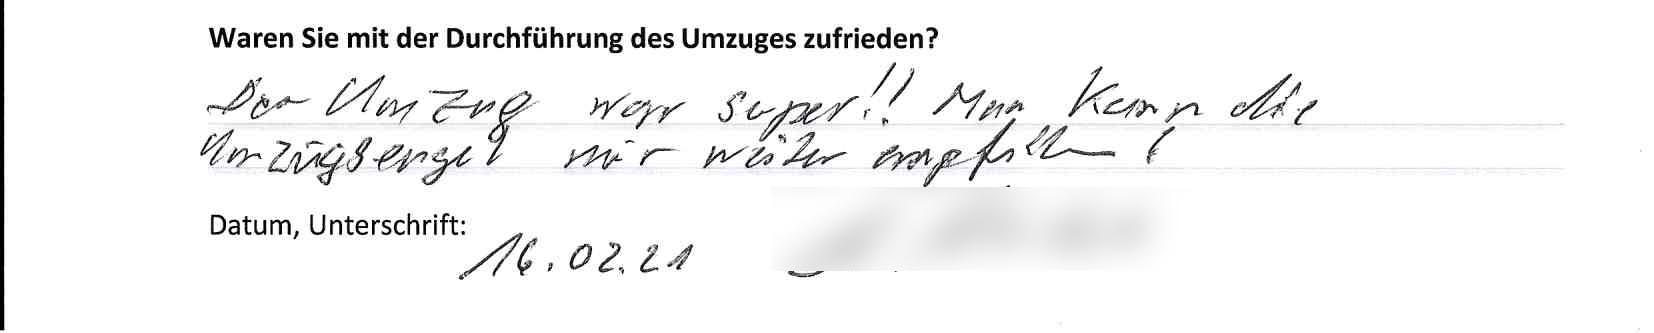 Waren Sie mit der Durchführung des Umzuges zufrieden?
Der Umzug war super!! Man kann die
Umzugsengel nur weiter empfehlen!
Datum, Unterschrift:
16.02.21